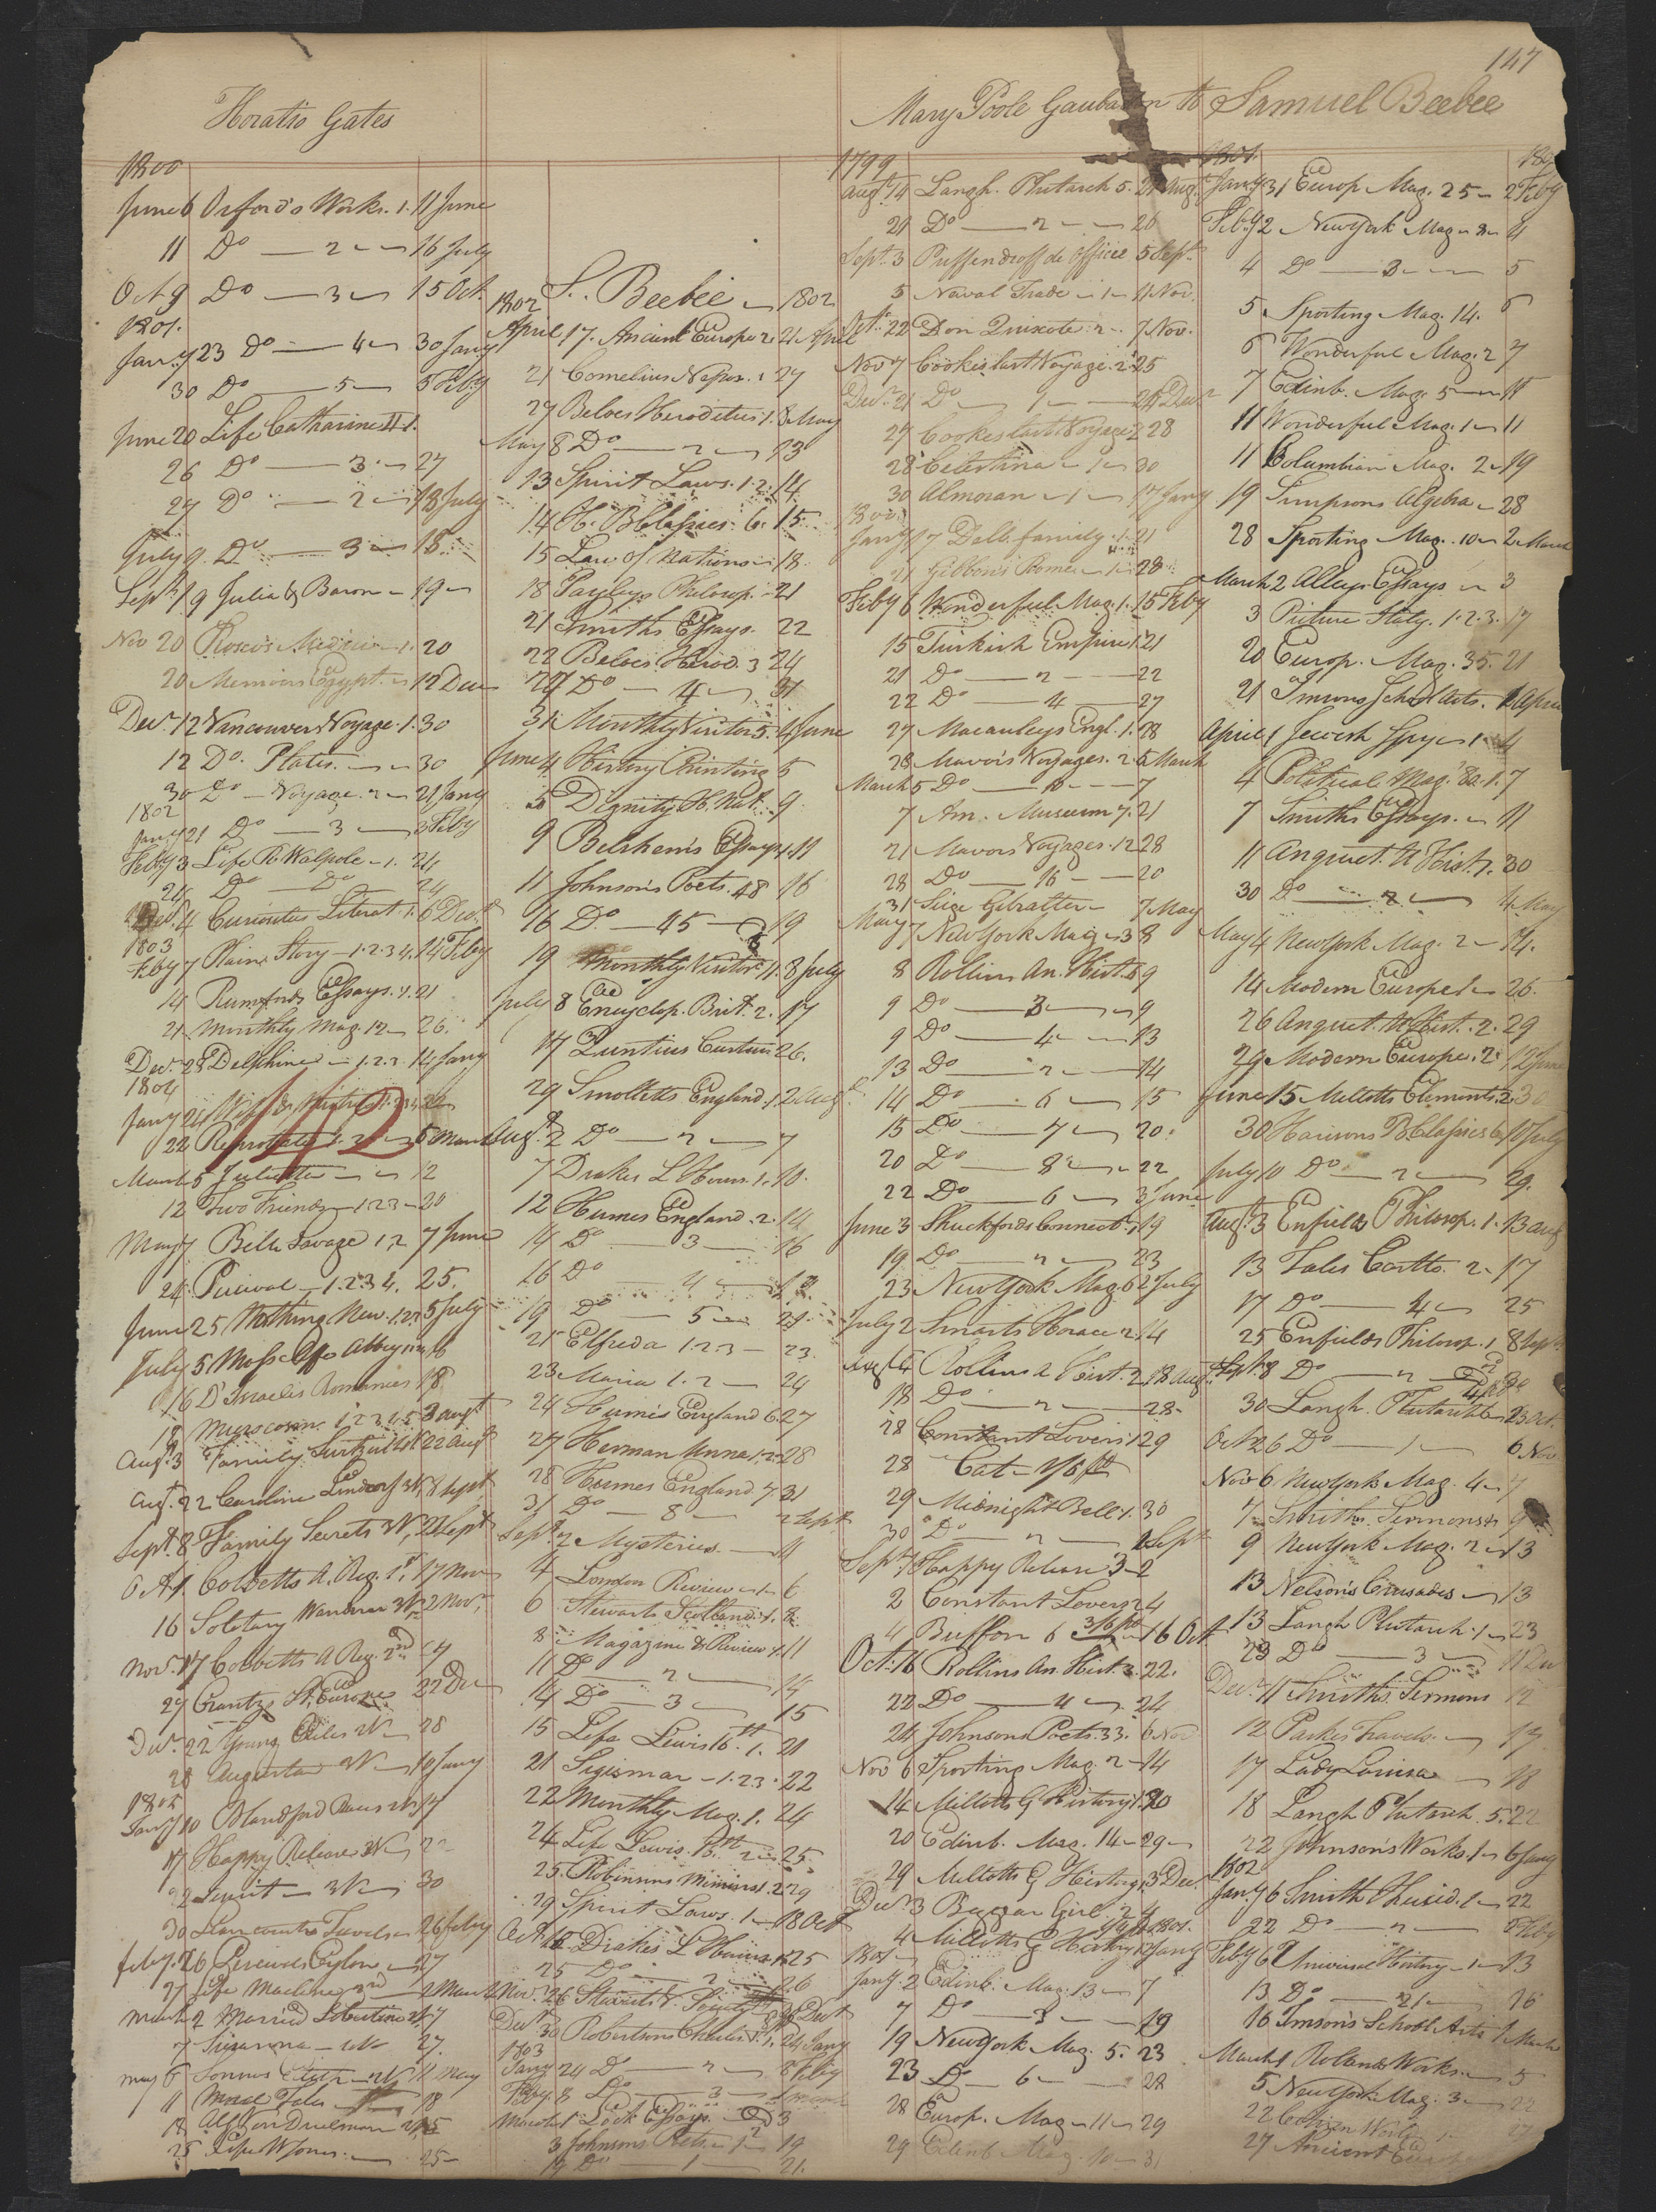 147
Horatio Gates
1800
June 6 Orford's Works. 1. 11 June
11 Do — 2 — 16 July
Oct 9 Do — 3 — 15 Oct.
1801.
Jany 23 Do — 4 — 30 Jany
30 Do — 5 — 5 Feby
June 20 Life Catharine II 1.
26 Do — 3 — 27
27 Do — 2 — 18 July
July 9. Do — 3 — 18
Sept. 19 Julia & Baron — 19
Nov 20 Rosco's Medici — 1. 20
20 Memoirs Egypt. — 12 Decr
Decr. 12 Vancouvers Voyage. 1. 30
12 Do. Plates. — 30
30 Do — Voyage. 2 — 21 Jany
1802
Jany 21 Do — 3 — 3 Feby
Feby 3 Life R Walpole — 1. 24
24 Do — Do 24
Decr. 4 Curiosities Literat. 1. 6 Decr.
1803
Feby 7 Plain Story — 1.2.3 4. 14 Feby
14 Rumfords Essays. 1. 21
21 Monthly Mag. 12 — 26.
Decr. 28 Delphine — 1.2.3. 14 Jany
1804
Jany 21
142
22 5 March
March 5 Julietta — 12
12 Two Friends — 1 2 3 — 20
May 7 Belle Savage 1,2 7 June
24 Percival — 1.2 3 4. 25.
June 25 Nothing New. 1,2,3 5 July
July 5 Moss Cliffe Abbey 16
16 D'Israelis Romances 18
18 Microcosm 1 2 3 4 5 3 augt
Augt. 3 Family 22 Augt
Augt. 22 Caroline Lindorf 3V, 8 Sept
Sept. 8 Family Secrets 3V, 22 Sept
Oct 1. Cobbetts A. Reg. 1st, 17 Nov
16 Solotary Wanderer 3V, 2 Nov.
Nov. 17 Cobbetts A Reg. 2nd 17
27 Crantzs St. Europe 22 Dec
Decr. 22 Young Exiles 2V — 28
28 Augusta 3V — 10 Jany
1805
Jany 10 Blandford Races 2V 17
17 Happy Release 3V 22
22 Secret — 3V — 30
30 Travels — 26 Feby
Feby. 26 Percivals Ceylon — 27
27 Life Macklin 2nd — 2 March
March 2 Married Libertine 2V 7
7 Susanna — 27.
May 6 11 May
11 Moral Tales — 18
18
25 Life W Jones. — 25
S. Beebee
1802 1802
April 17. Ancient Europe 2. 21 April
21 Cornelius Nepos. 1 27
27 Beloes Heroditus 1. 8 May
May 8 Do — 2 — 13
13 Spirit Laws. 1.2. 14
14 H. B Classics. 6. 15
15 Law of Nations — 18
18 Payleys Philosop. — 21
21 Smiths Essays. 22
22 Beloes Herod. 3 24
24 Do — 4 — 31
31 Monthly Visitor 5. 4 June
June 4 History Printing 5
5 Dignity H. Nat. 9
9 Belshem's Essays 1. 11
11 Johnson's Poets. 48 16
16 Do. — 45 — 19
19 Monthly Visitor. 11. 8 July
July 8 Encyclop. Brit. 2. 17
17 Quntius Curtius 26.
29 Smolletts England. 1. 2 Augt.
Augt. 2 Do — 2 — 7
7 Drakes L Hours. 1. 10.
12 Humes England. 2. 14
14 Do — 3 — 16
16 Do — 4 —
19 Do — 5 — 21
21 Elfreda 1.2 3 — 23.
23 Maria 1. 2 — 24
24 Humes England 6. 27
27 Herman Unna 1. 2. 28
28 Humes England 7 31
31 Do — 8 — 2 Sept
Sept. 2 Mysteries — 4
4 London Review — 1 — 6
6 Stewarts Scotland. 1. 8
8 Magazine & Review 1. 11
11 Do — 2 — 14
14 Do — 3 — 15
15 Life Lewis 16th. 1. 21
21 Sigismar — 1. 2 3. 22
22 Monthly Mag. 1. 24
24 Life Lewis. 16th 2 — 25
25 Robinsons 1. 2 29
29 Spirit Laws. 1 — 18 Oct
Oct 18 Drakes L Hours 1. 25
25 Do — 2 — 26
Nov. 26 8 Dec
Decr. 30 Robertsons Charles V. 1. 24 Jany
1803
Jany 24 Do — 2 — 8 Feby
Feby. 8 Do — 3 — 1 March
March 1 Lock Essays. — 2d 3
3 Johnsons Poets — 1 — 19
19 Do — 1 — 21.
Mary Poole to Samuel Beebee
1799
Augt. 14 Langh. Plutarch 5. 21 Aug.
21 Do — 2 — 26
Sept. 3 Puffendroff de Officie 5 Sept.
5 Naval Trade — 1 — 4 Nov.
Oct. 22 Don Quixote. 2 — 7 Nov.
Nov 7 Cookes last Voyage. 2. 25
Decr. 21 Do — 1 — 24 Decr
27 Cookes last Voyage 2 28
28 Celestina — 1 — 30
30 Almoran — 1 — 17 Jany
1800
Jany 17 Dellb. family. 1. 21
21 Gibbon's Rome — 1 — 28
Feby 6 Wonderful Mag. 1. 15 Feby
15 Turkish Empire 1. 21
21 Do — 2 — 22
22 Do — 4 — 27
27 Macauleys Engl. 1. 28
28 Mavor's Voyages. 2. 5 March
March 5 Do — 10 — 7
7 Am. Museum 7. 21
21 Mavors Voyages. 12 28
28 Do — 16 — 20
31 Siege Gibralter — 7 May
May 7 New York Mag — 3 8
8 Rollins An. Hist. 8 9
9 Do — 3 — 9
9 Do — 4 — 13
13 Do — 2 — 14
14 Do — 6 — 15
15 Do — 7 — 20
20 Do — 8 — 22
22 Do — 6 — 3 June
June 3 Shuckfords Connect. 1. 19
19 Do — 2 — 23
23 New York Mag. 6 2 July
July 2 Smarts Horace 2. 14
Augt. 4 Rollins A Hist. 2. 18 Aug.
18 Do — 2 — 28
28 Constant Lovers 1 29
28 Cat —
29 Midnight Bell 1. 30
30 Do — 2 — 1 Sept
Sept. 1 Happy Release 3 — 2
2 Constant Lovers 2 4
4 Buffon 6 — 16 Oct
Oct. 16 Rollins An. Hist. 3. 22.
22 Do — 4 — 24
24 Johnsons Poets. 33. 6 Nov
Nov 6 Sporting Mag. 2 — 14
14 Millotts G History 1. 20
20 Edinb. Mag. 14 — 29
29 Millotts G History 1. 3 Decr.
Decr. 3 Beggar Girl. 2 4
4 Millotts G History 1. 2 Jany
1801
Jany. 2 Edinb. Mag. 13 — 7
7 Do — 3 — 19
19 New York Mag. 5. 23
23 Do — 6 — 28
28 Europ. Mag — 11 — 29
29 Edinb Mag. 10 — 31
1801. 1801
Jany 31 Europ Mag. 25 — 2 Feby
Feby 2 New York Mag — 2 — 4
4 Do — 3 — 5
5 Sporting Mag. 14. 6
6 Wonderful Mag. 2 7
7 Edinb. Mag. 5 — 11
11 Wonderful Mag. 1 — 11
11 Columbian Mag. 2 — 19
19 Simpsons Algebra — 28
28 Sporting Mag. 10 — 2 March
March 2 Alleyn Essays — 3
3 Picture Italy. 1.2.3. 17
20 Europ. Mag. 35. 21
21 Imsons School Arts. 1 April
April 1 Jewish Spy — 1 — 4
4 Political Mag. 1. 7
7 Smiths Essays. — 11
11 Anquet. U Hist. 1. 30
30 Do — 2 — 4 May
May 4 New York Mag. 2 — 14.
14 Modern Europe 1 — 26.
26 Anquet. U Hist. 2. 29
29 Modern Europe. 2. 12 June
June 15 Millotts Elements 2. 30
30 Harisons B. Classics 6. 10 July
July 10 Do — 2 — 29.
Augt. 3 Enfields Philosop. 1. 13 aug
13 Tales Castle. 2. 17
17 Do — 4 — 25
25 Enfields Philosop. 1 8 Sept.
Sept. 8 Do — 2 — 30
30 Langh. Plutarch 6 — 23 Oct.
Oct 26 Do — 1 — 6 Nov
Nov 6 New York Mag. 4 — 7
7 Smiths Sermons 9
9 New York Mag. 2 — 13
13 Nelson's Crusades — 13
13 Langh Plutarch. 1 — 23
23 Do — 3 — 11 Dec
Decr. 11 Smiths Sermons 12
12 Parkes Travels. — 17
17 Lady Louisa — 18
18 Langh Plutarch. 5. 22
22 Johnson's Works. 1 — 6 Jany
1802
Jany 6 Smith Thucid. 1 — 22
22 Do — 2 — 2 Feby
Feby 6 Universal History — 1 — 13
13 Do — 21 — 16
16 Imson's School Arts 1 March
March 1 Rolands Works. — 5
5 New York Mag. 3 — 22
22 27
27 Ancient Europe